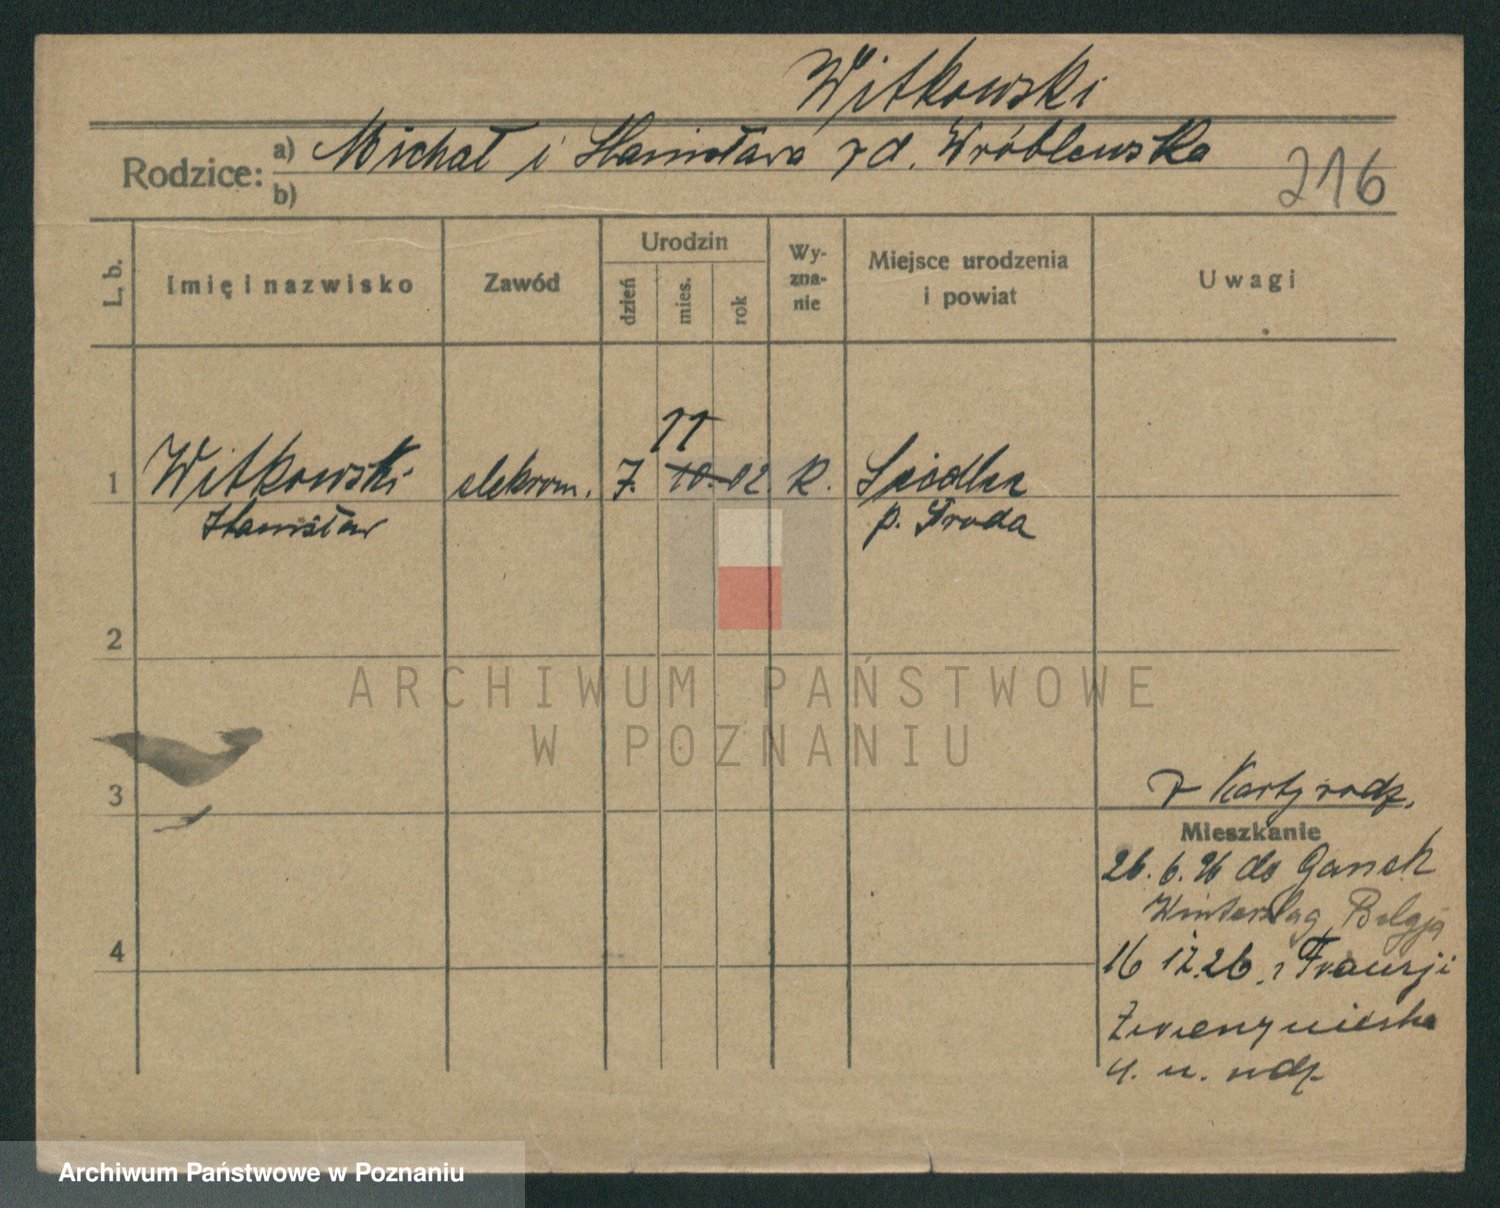 Witkowski
Rodzice: a) Michał i Stanisława z d. Wróblewska
b)
216
L. b. Imię i nazwisko Zawód Urodzin dzień mies. rok Wy-zna-nie Miejsce urodzenia i powiat Uwagi
11
1 Witkowski elektrom. 7. 10. 02. R. Siedlec
Stanisław p. Środa
2
ARCHIWUM PAŃSTWOWE
W POZNANIU
3
z Karty rodz.
Mieszkanie
26. 6. 26 do
Winterslag Belgja
4
16 12. 26. z Francji
u. rodz.
Archiwum Państwowe w Poznaniu